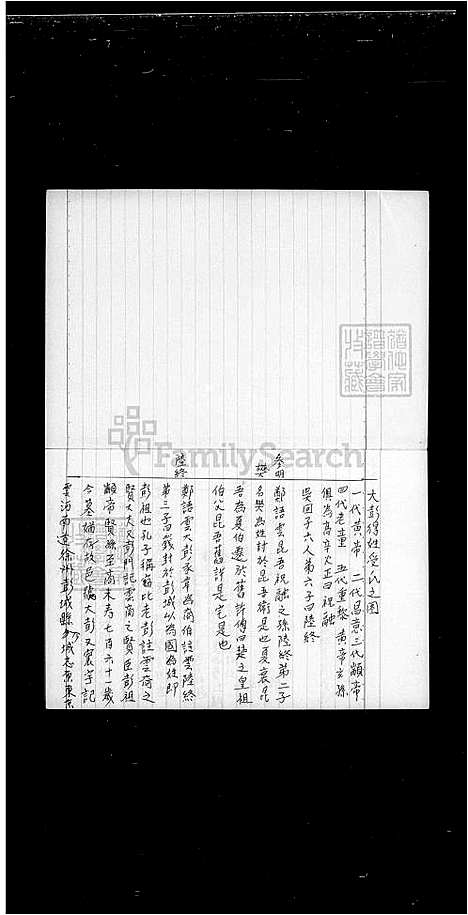 大彭得姓受氏之圖
一代黃帝 二代昌意 三代顓帝
四代老童 五代重黎 黃帝玄孫
俱為高辛火正曰祝融
吳回子六人第六子曰陸終
參胡 鄭語雲昆吾祝融之孫陸終第二子
樊 名樊為姓封於昆吾衛是也夏衰昆
吾為夏伯遷於舊許傳曰楚之皇祖
伯父昆吾舊許是宅是也
陸終 鄭語雲大彭豕韋為商伯註雲陸終
第三子曰籛封於彭城以為國為姓即
彭祖也孔子稱竊比老彭註雲商之
賢大夫又彭門記雲商之賢臣彭祖
顓帝賢孫至商末壽七百六十七歲
今墓猶存故邑號大彭又寰宇記
雲河南道徐州彭城縣
FamilySearch